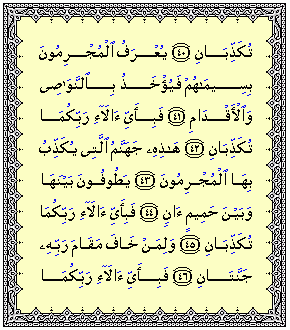 تُكَذِّبَانِ ٤٠ يُعْرَفُ ٱلْمُجْرِمُونَ
بِسِيمَـٰهُمْ فَيُؤْخَذُ بِٱلنَّوَٰصِى
وَٱلْأَقْدَامِ ٤١ فَبِأَىِّ ءَالَآءِ رَبِّكُمَا
تُكَذِّبَانِ ٤٢ هَـٰذِهِۦ جَهَنَّمُ ٱلَّتِى يُكَذِّبُ
بِهَا ٱلْمُجْرِمُونَ ٤٣ يَطُوفُونَ بَيْنَهَا
وَبَيْنَ حَمِيمٍ ءَانٍ ٤٤ فَبِأَىِّ ءَالَآءِ رَبِّكُمَا
تُكَذِّبَانِ ٤٥ وَلِمَنْ خَافَ مَقَامَ رَبِّهِۦ
جَنَّتَانِ ٤٦ فَبِأَىِّ ءَالَآءِ رَبِّكُمَا